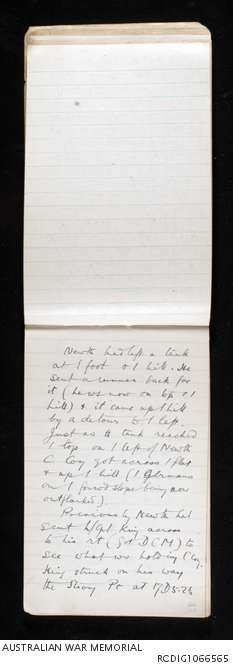 Newth had left a tank
at / foot o / hill. He
sent a runner back for
it (he ws now on top o /
hill) & it came up / hill
by a detour to / left.
Just as / tank reached
/ top on / left of Newth
C Coy got across / flat
& up / hill (/ Germans
on / forwd slope being now
outflanked).
Previously Newth had
sent L/Cpl. King across
to his rt (got D.C.M.) to
see what ws holding C Coy.
King struck on his way
the Strong Pt at 17D.5.26
AUSTRALIAN WAR MEMORIAL
RCDIG1066565